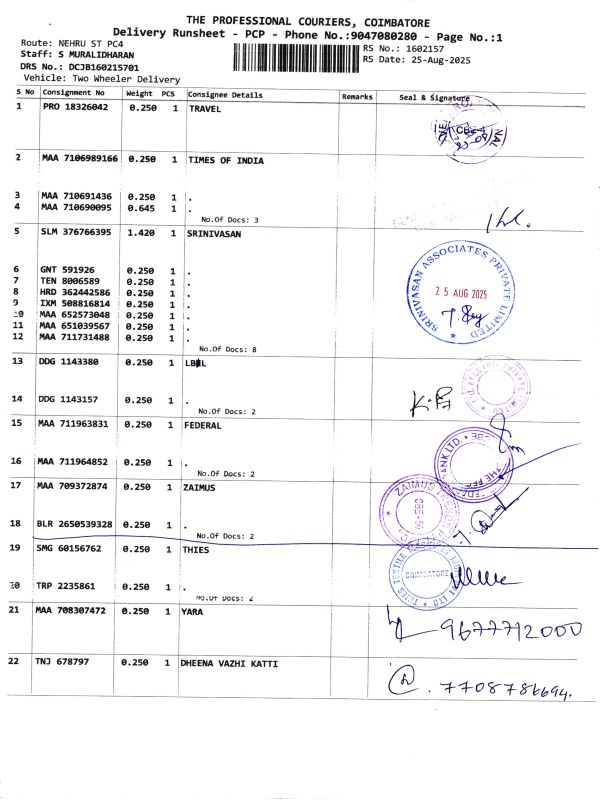 THE PROFESSIONAL COURIERS, COIMBATORE
Delivery Runsheet - PCP - Phone No.:9047080280 - Page No.:1
Route: NEHRU ST PC4
Staff: S MURALIDHARAN
DRS No.: DCJB160215701
Vehicle: Two Wheeler Delivery
RS No.: 1602157
RS Date: 25-Aug-2025
S No Consignment No Weight PCS Consignee Details Remarks Seal & Signature
1 PRO 18326042 0.250 1 TRAVEL
2 MAA 7106989166 0.250 1 TIMES OF INDIA
3 MAA 710691436 0.250 1 .
4 MAA 710690095 0.645 1 .
No.Of Docs: 3
5 SLM 376766395 1.420 1 SRINIVASAN
SRINIVASAN ASSOCIATES PRIVATE LIMITED
25 AUG 2025
6 GNT 591926 0.250 1 .
7 TEN 8006589 0.250 1 .
8 HRD 362442586 0.250 1 .
9 IXM 508816814 0.250 1 .
10 MAA 652573048 0.250 1 .
11 MAA 651039567 0.250 1 .
12 MAA 711731488 0.250 1 .
No.Of Docs: 8
13 DDG 1143380 0.250 1
14 DDG 1143157 0.250 1 .
No.Of Docs: 2
15 MAA 711963831 0.250 1 FEDERAL
16 MAA 711964852 0.250 1 .
No.Of Docs: 2
17 MAA 709372874 0.250 1 ZAIMUS
ZAIMUS
18 BLR 2650539328 0.250 1 .
No.Of Docs: 2
19 SMG 60156762 0.250 1 THIES
COIMBATORE
20 TRP 2235861 0.250 1 .
No.Of Docs: 2
21 MAA 708307472 0.250 1 YARA
9677712000
22 TNJ 678797 0.250 1 DHEENA VAZHI KATTI
7708786694.